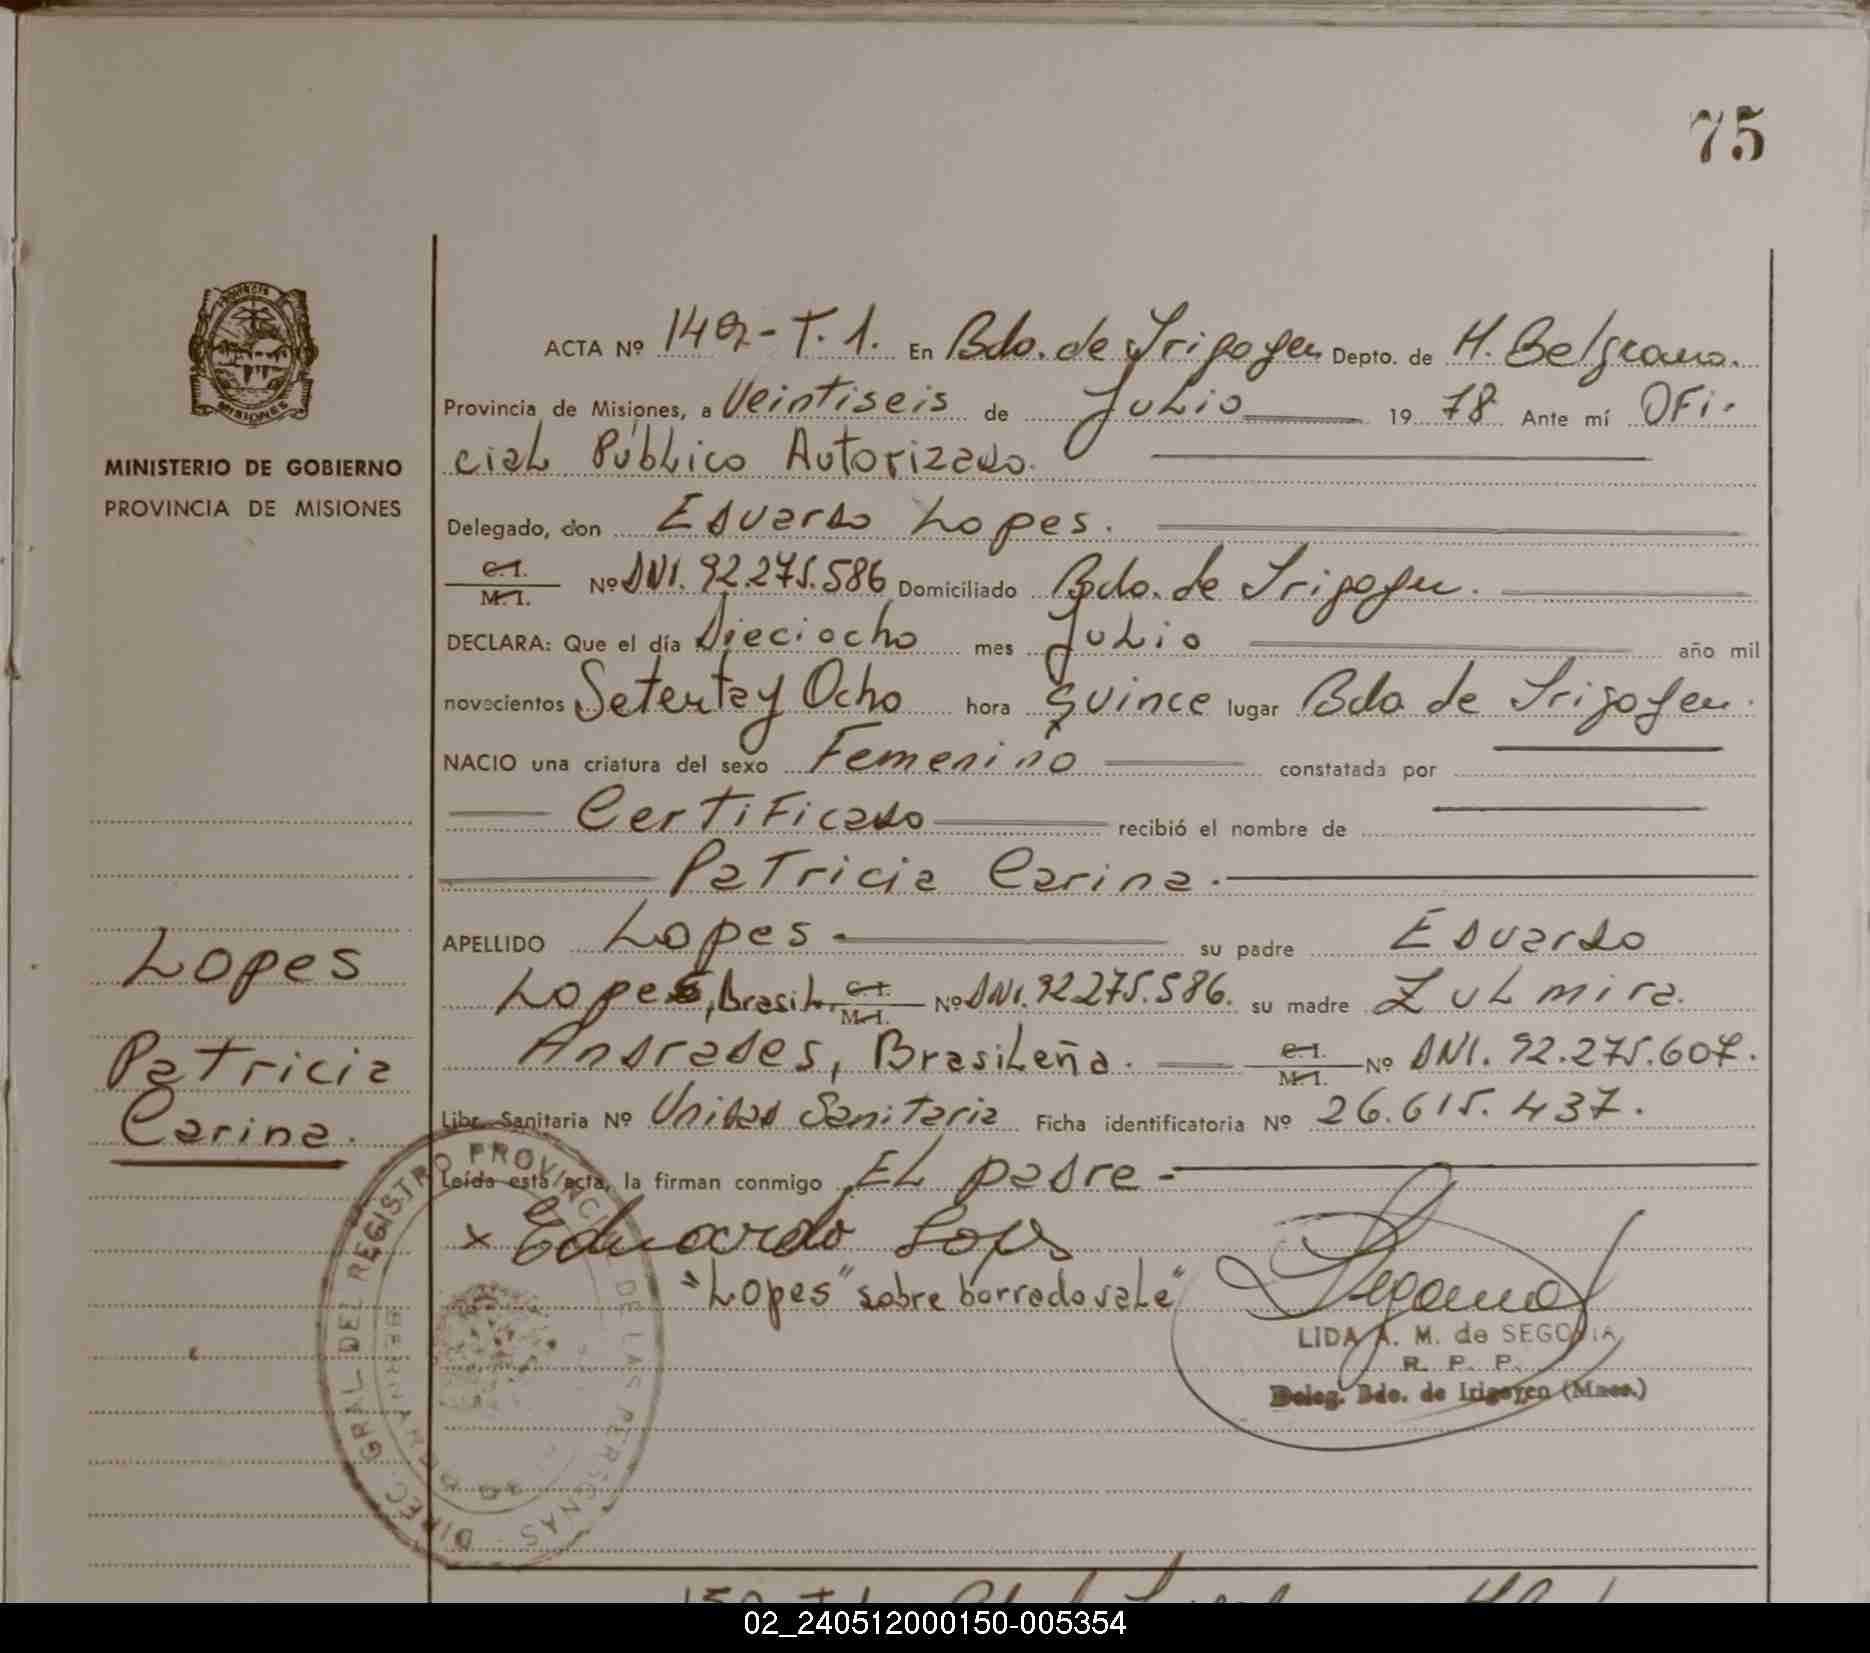 75
PROVINCIA
MISIONES
MINISTERIO DE GOBIERNO
PROVINCIA DE MISIONES
Lopes
Patricia
Carina.
ACTA Nº 149-T.1. En Bdo. de Irigoyen Depto. de H. Belgrano.
Provincia de Misiones, a Veintiseis de Julio 1978 Ante mí Ofi-
cial Público Autorizado.
Delegado, don Eduardo Lopes.
C.I. M.I. Nº DNI. 92.275.586 Domiciliado Bdo. de Irigoyen.
DECLARA: Que el día Dieciocho mes Julio año mil
novecientos Setenta y Ocho hora Quince lugar Bdo de Irigoyen.
NACIO una criatura del sexo Femenino constatada por
Certificado recibió el nombre de
Patricia Carina.
APELLIDO Lopes su padre Eduardo
Lopes, Brasil. C.I. M.I. Nº DNI. 92.275.586. su madre Zulmira
Andrades, Brasileña. C.I. M.I. Nº DNI. 92.275.607.
Libr. Sanitaria Nº Unidad Sanitaria Ficha identificatoria Nº 26.615.437.
Leída esta acta, la firman conmigo EL padre
x Eduardo Lopes
"Lopes" sobre borrado vale"
LIDA A. M. de SEGOVIA
R. P. P.
Deleg. Bdo. de Irigoyen (Mnes.)
DIREC. GRAL. DEL REGISTRO PROVINCIAL DE LAS PERSONAS
02_240512000150-005354